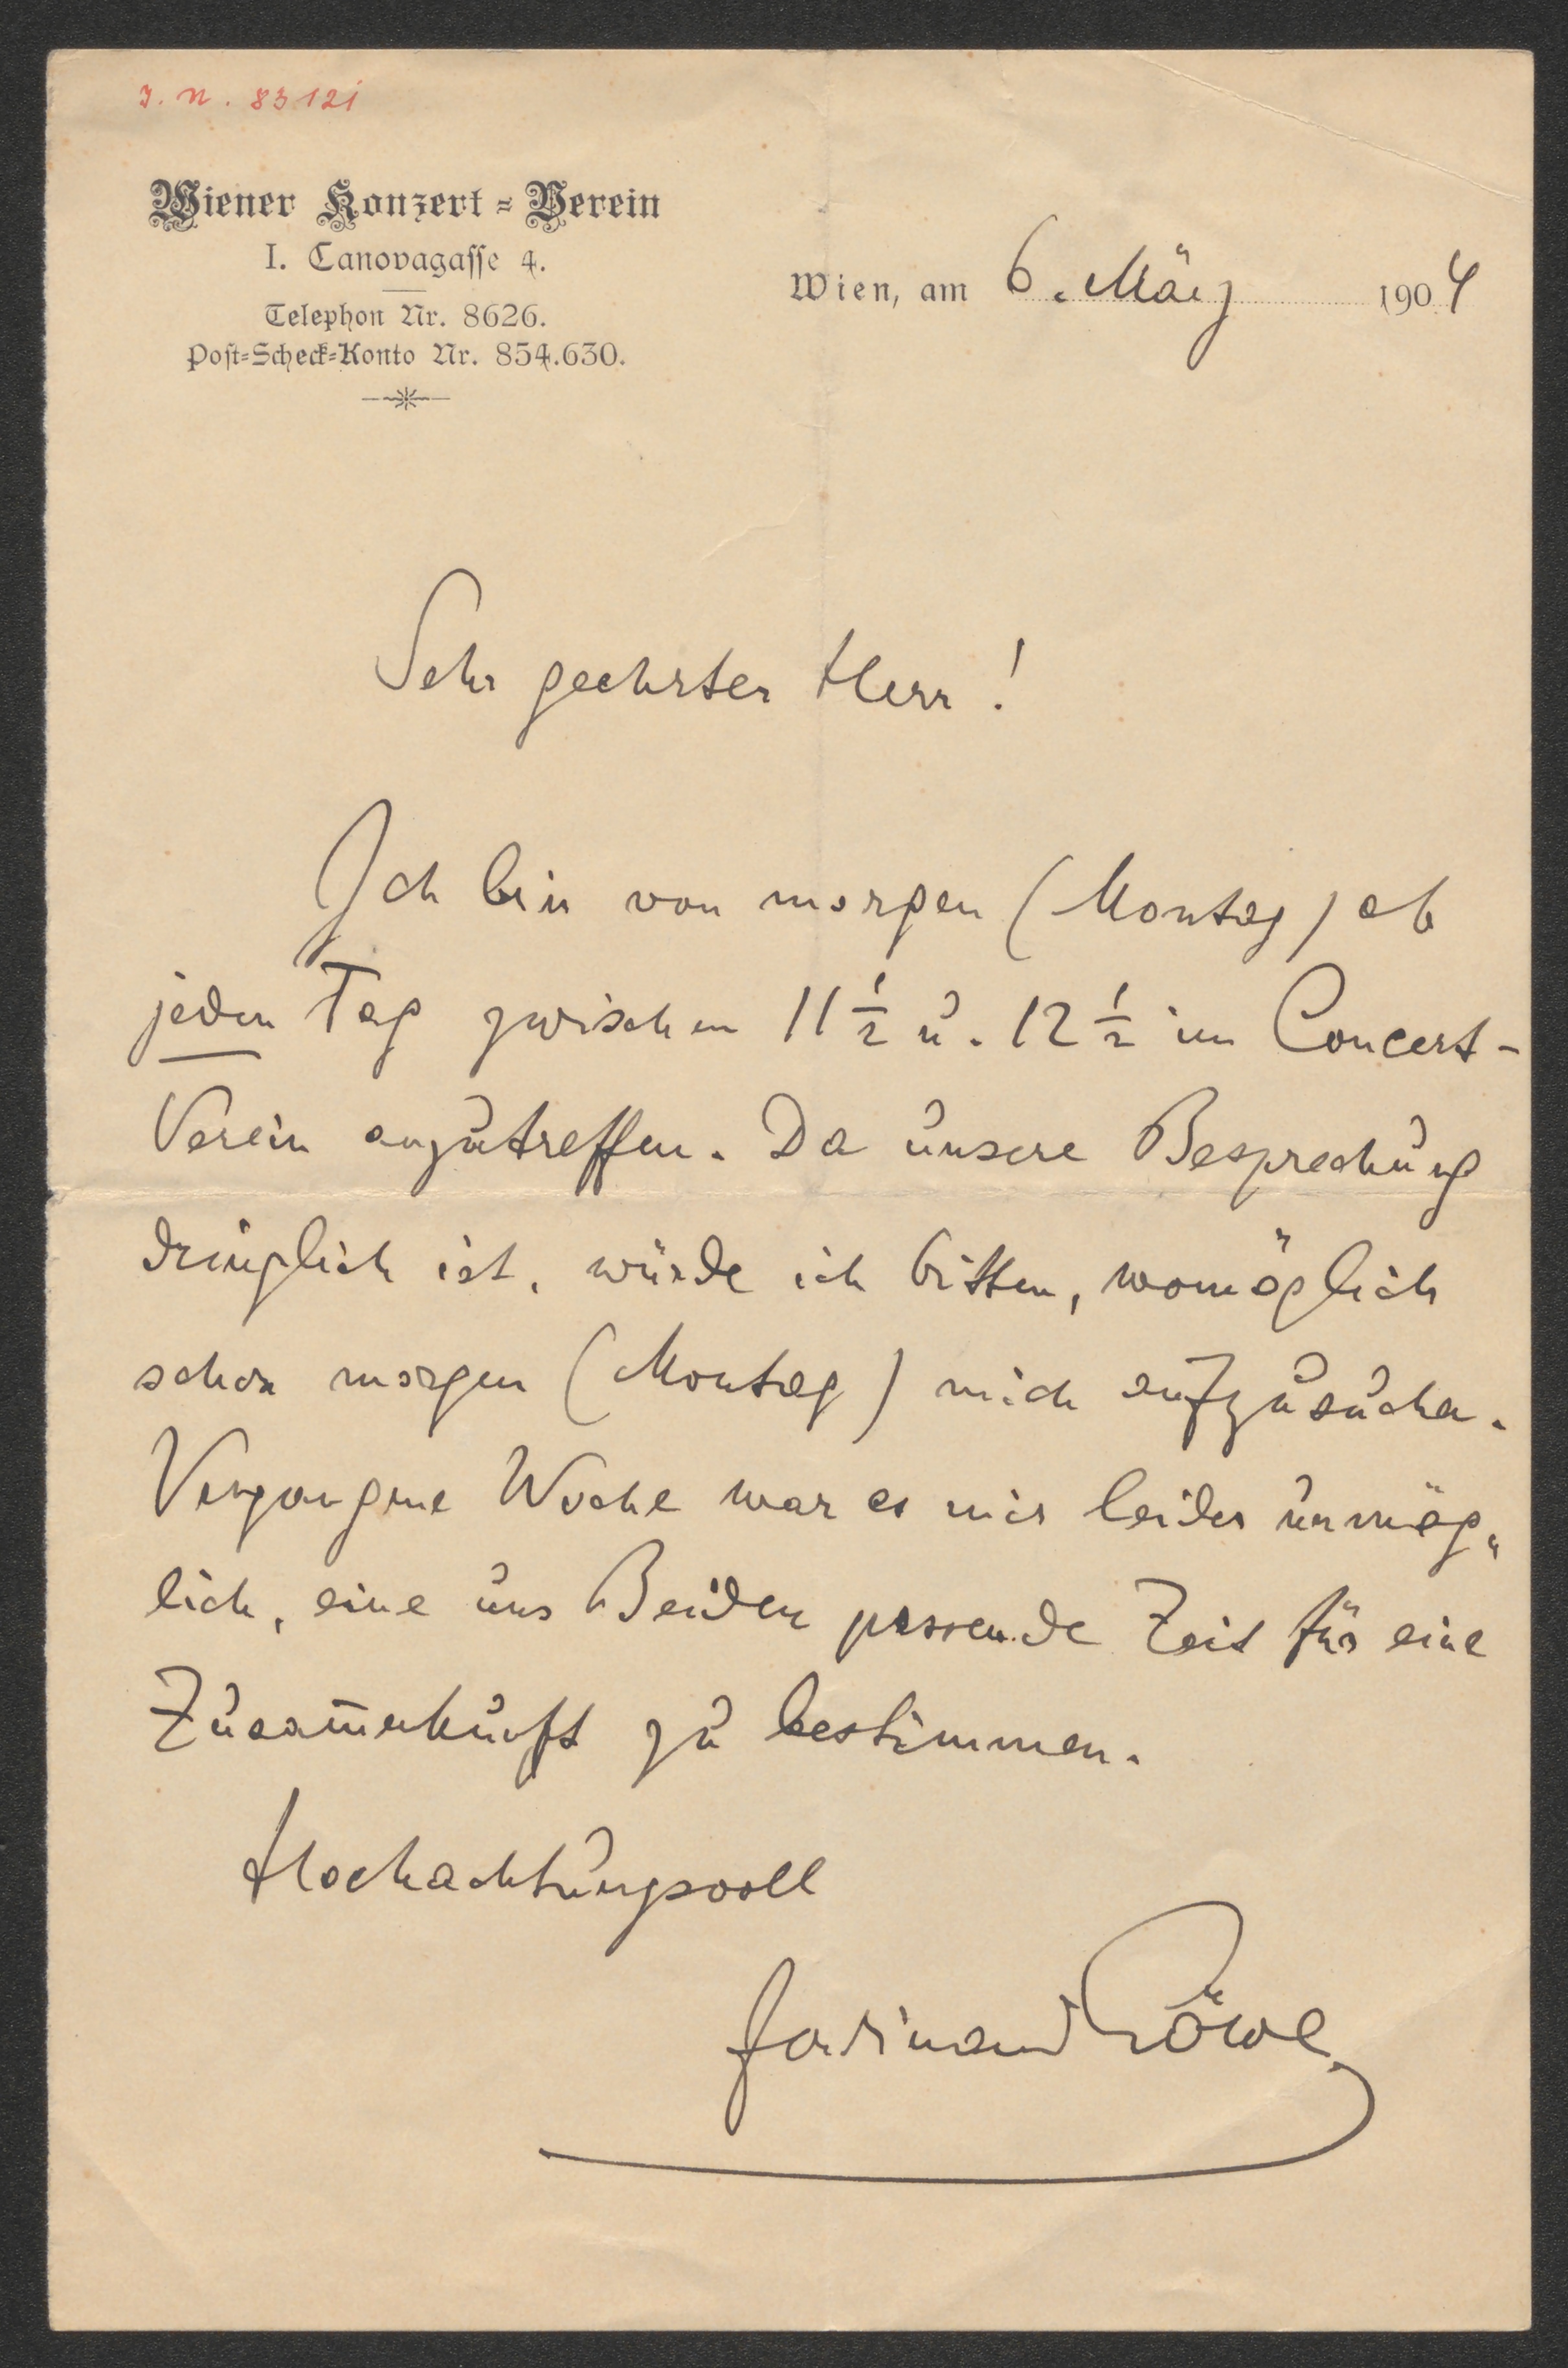 J. N. 83121
Wiener Konzert-Verein
I. Canovagasse 4.
Telephon Nr. 8626.
Post-Scheck-Konto Nr. 854.630.
Wien, am 6. März 1904
Sehr geehrter Herr!
Ich bin von morgen (Montag) ab
jeden Tag zwischen 11 1/2 u. 12 1/2 im Concert-
Verein anzutreffen. Da unsere Besprechung
dringlich ist, würde ich bitten, womöglich
schon morgen (Montag) mich aufzusuchen.
Vergangene Woche war es mir leider unmög„
lich, eine uns Beiden passende Zeit für eine
Zusam̅enkunft zu bestimmen.
Hochachtungsvoll
Ferdinand Löwe